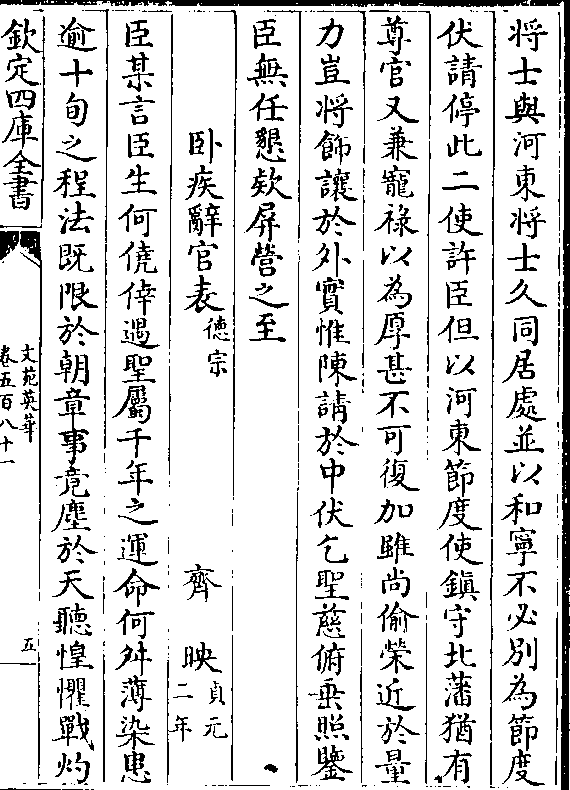 将士與河東将士久同居處並以和寧不必别為節度
伏請停此二使許臣但以河東節度使鎮守北藩猶有
尊官又兼寵禄以為厚甚不可復加雖尚偷榮近於量
力豈将飾讓於外實惟陳請於中伏乞聖慈俯垂照鑒
臣無任懇欵屏營之至
卧疾辭官表德宗 齊映貞元二年
臣某言臣生何僥倖遇聖屬千年之運命何舛薄染患
逾十旬之程法既限於朝章事竟塵於天聽惶懼戰灼
欽定四庫全書
文苑英華
卷五百八十一
五